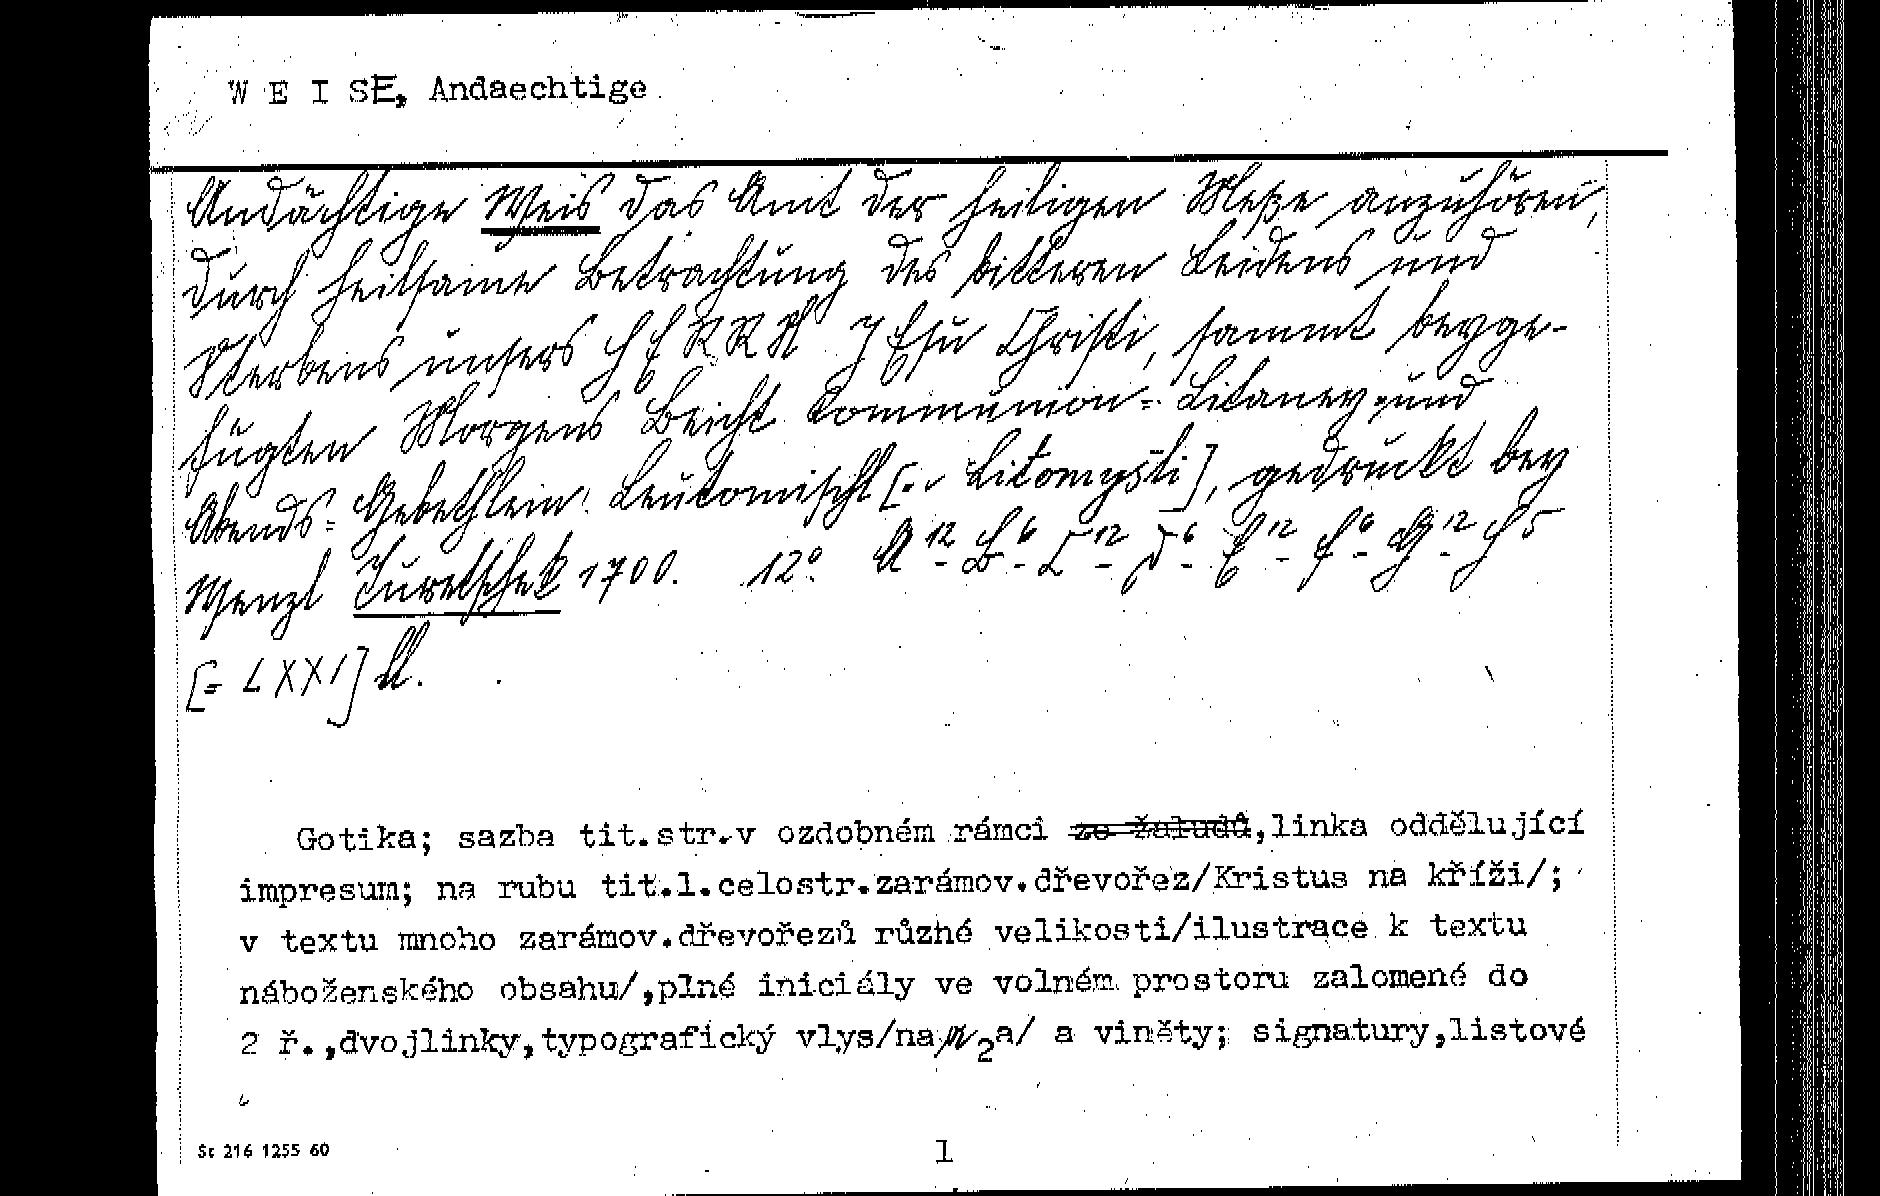 W E I SE, Andaechtige
Andächtige Weis das Amt der heiligen Meße anzuhören,
durch heilsame Betrachtung des bitteren Leidens und
Sterbens unsers HERRN JEsu Christi, sammt beyge-
fügten Morgens Beicht Communion=Litaney=und
Abends=Gebethlein. Leutomischl [v Litomyšli], gedruckt bey
Wenzl Turetschek 1700. 12° A12-B6-C12-D6-E12-F6-G12 H5
[= LXXI] ll.
Gotika; sazba tit.str.v ozdobném rámci ze žaludů,linka oddělující
impresum; na rubu tit.l.celostr.zarámov.dřevořez/Kristus na kříži/;
v textu mnoho zarámov.dřevořezů různé velikosti/ilustrace k textu
náboženského obsahu/,plné iniciály ve volném prostoru zalomené do
2 ř.,dvojlinky,typografický vlys/na 2a/ a viněty; signatury,listové
Sč 216 1255 60
1